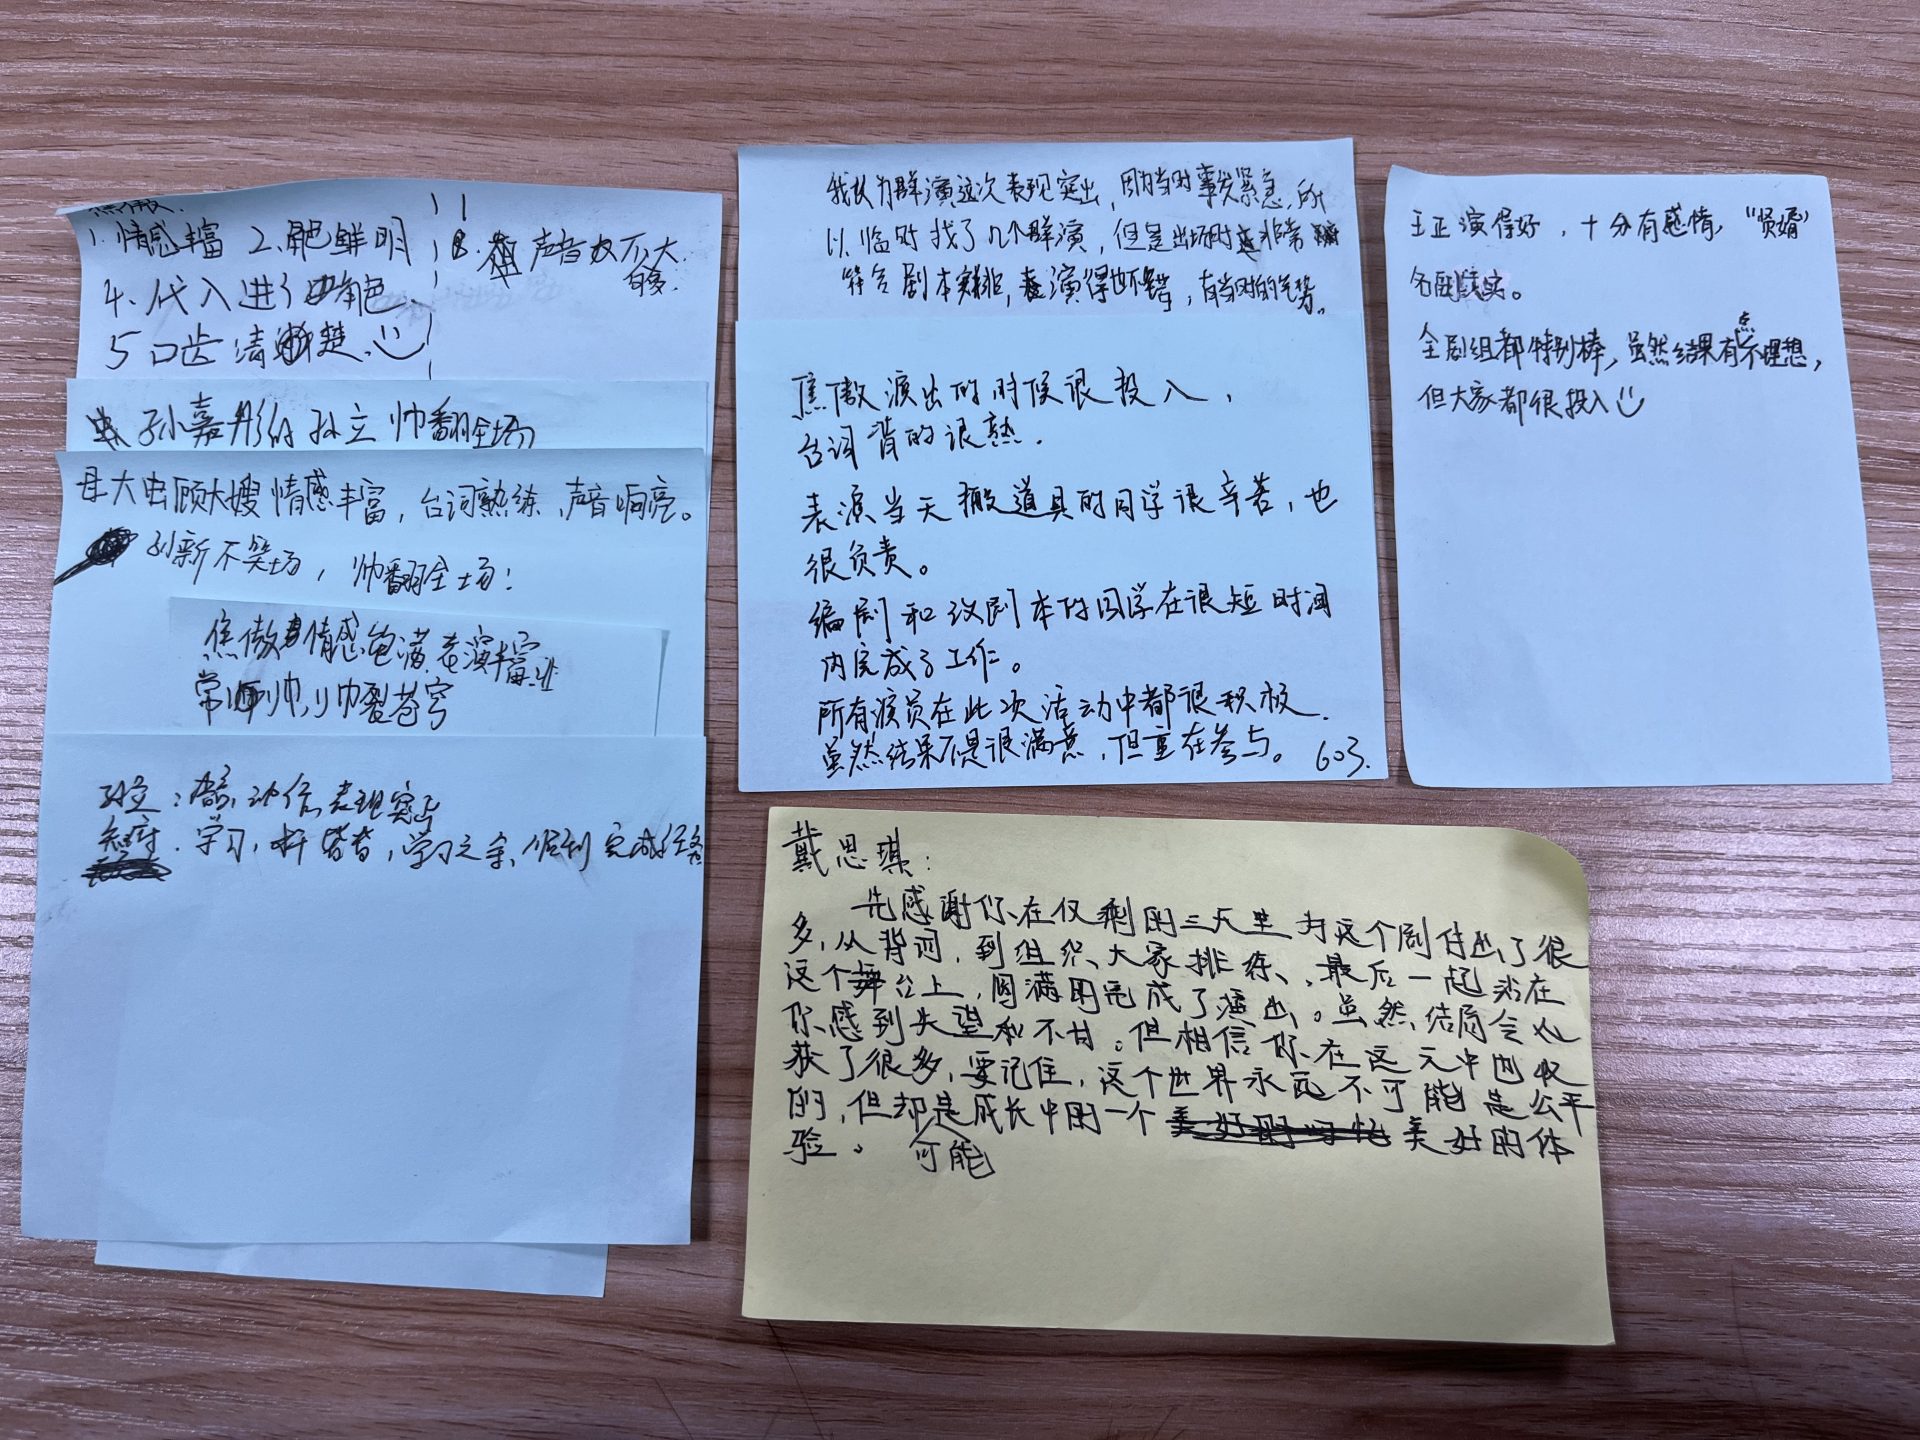 1.情感丰富 2.角色鲜明
4.代入进了角色.
5 口齿清晰楚.
声音不大
够.
孙嘉彤的孙立帅翻全场
母大虫顾大嫂情感丰富，台词熟练，声音响亮。
孙新不笑场，帅翻全场！
焦傲情感饱满.表演丰富.
帅裂苍穹
孙立：表现突出
知府.学习，学习之余，完成任务
我认为群演这次表现突出，因为当时事发紧急，所
以临时找了几个群演，但是出场时非常
符合剧本安排，表演得也不错，有当时的气势。
焦傲演出的时候很投入，
台词背的很熟.
表演当天搬道具的同学很辛苦，也
很负责。
编剧和改剧本的同学在很短时间
内完成了工作。
所有演员在此次活动中都很积极.
虽然结果不是很满意，但重在参与。 603.
王正演得好，十分有感情，“贤婿”
名副其实。
全剧组都特别棒，虽然结果有点不理想，
但大家都很投入
戴思琪：
先感谢你在仅剩的三天里为这个剧付出了很
多，从背词，到组织大家排练，最后一起站在
这个舞台上，圆满的完成了演出。虽然结局会让
你感到失望和不甘。但相信你在这之中也收
获了很多，要记住，这个世界永远不可能是公平
的，但却可能是成长中的一个美好的体
验。